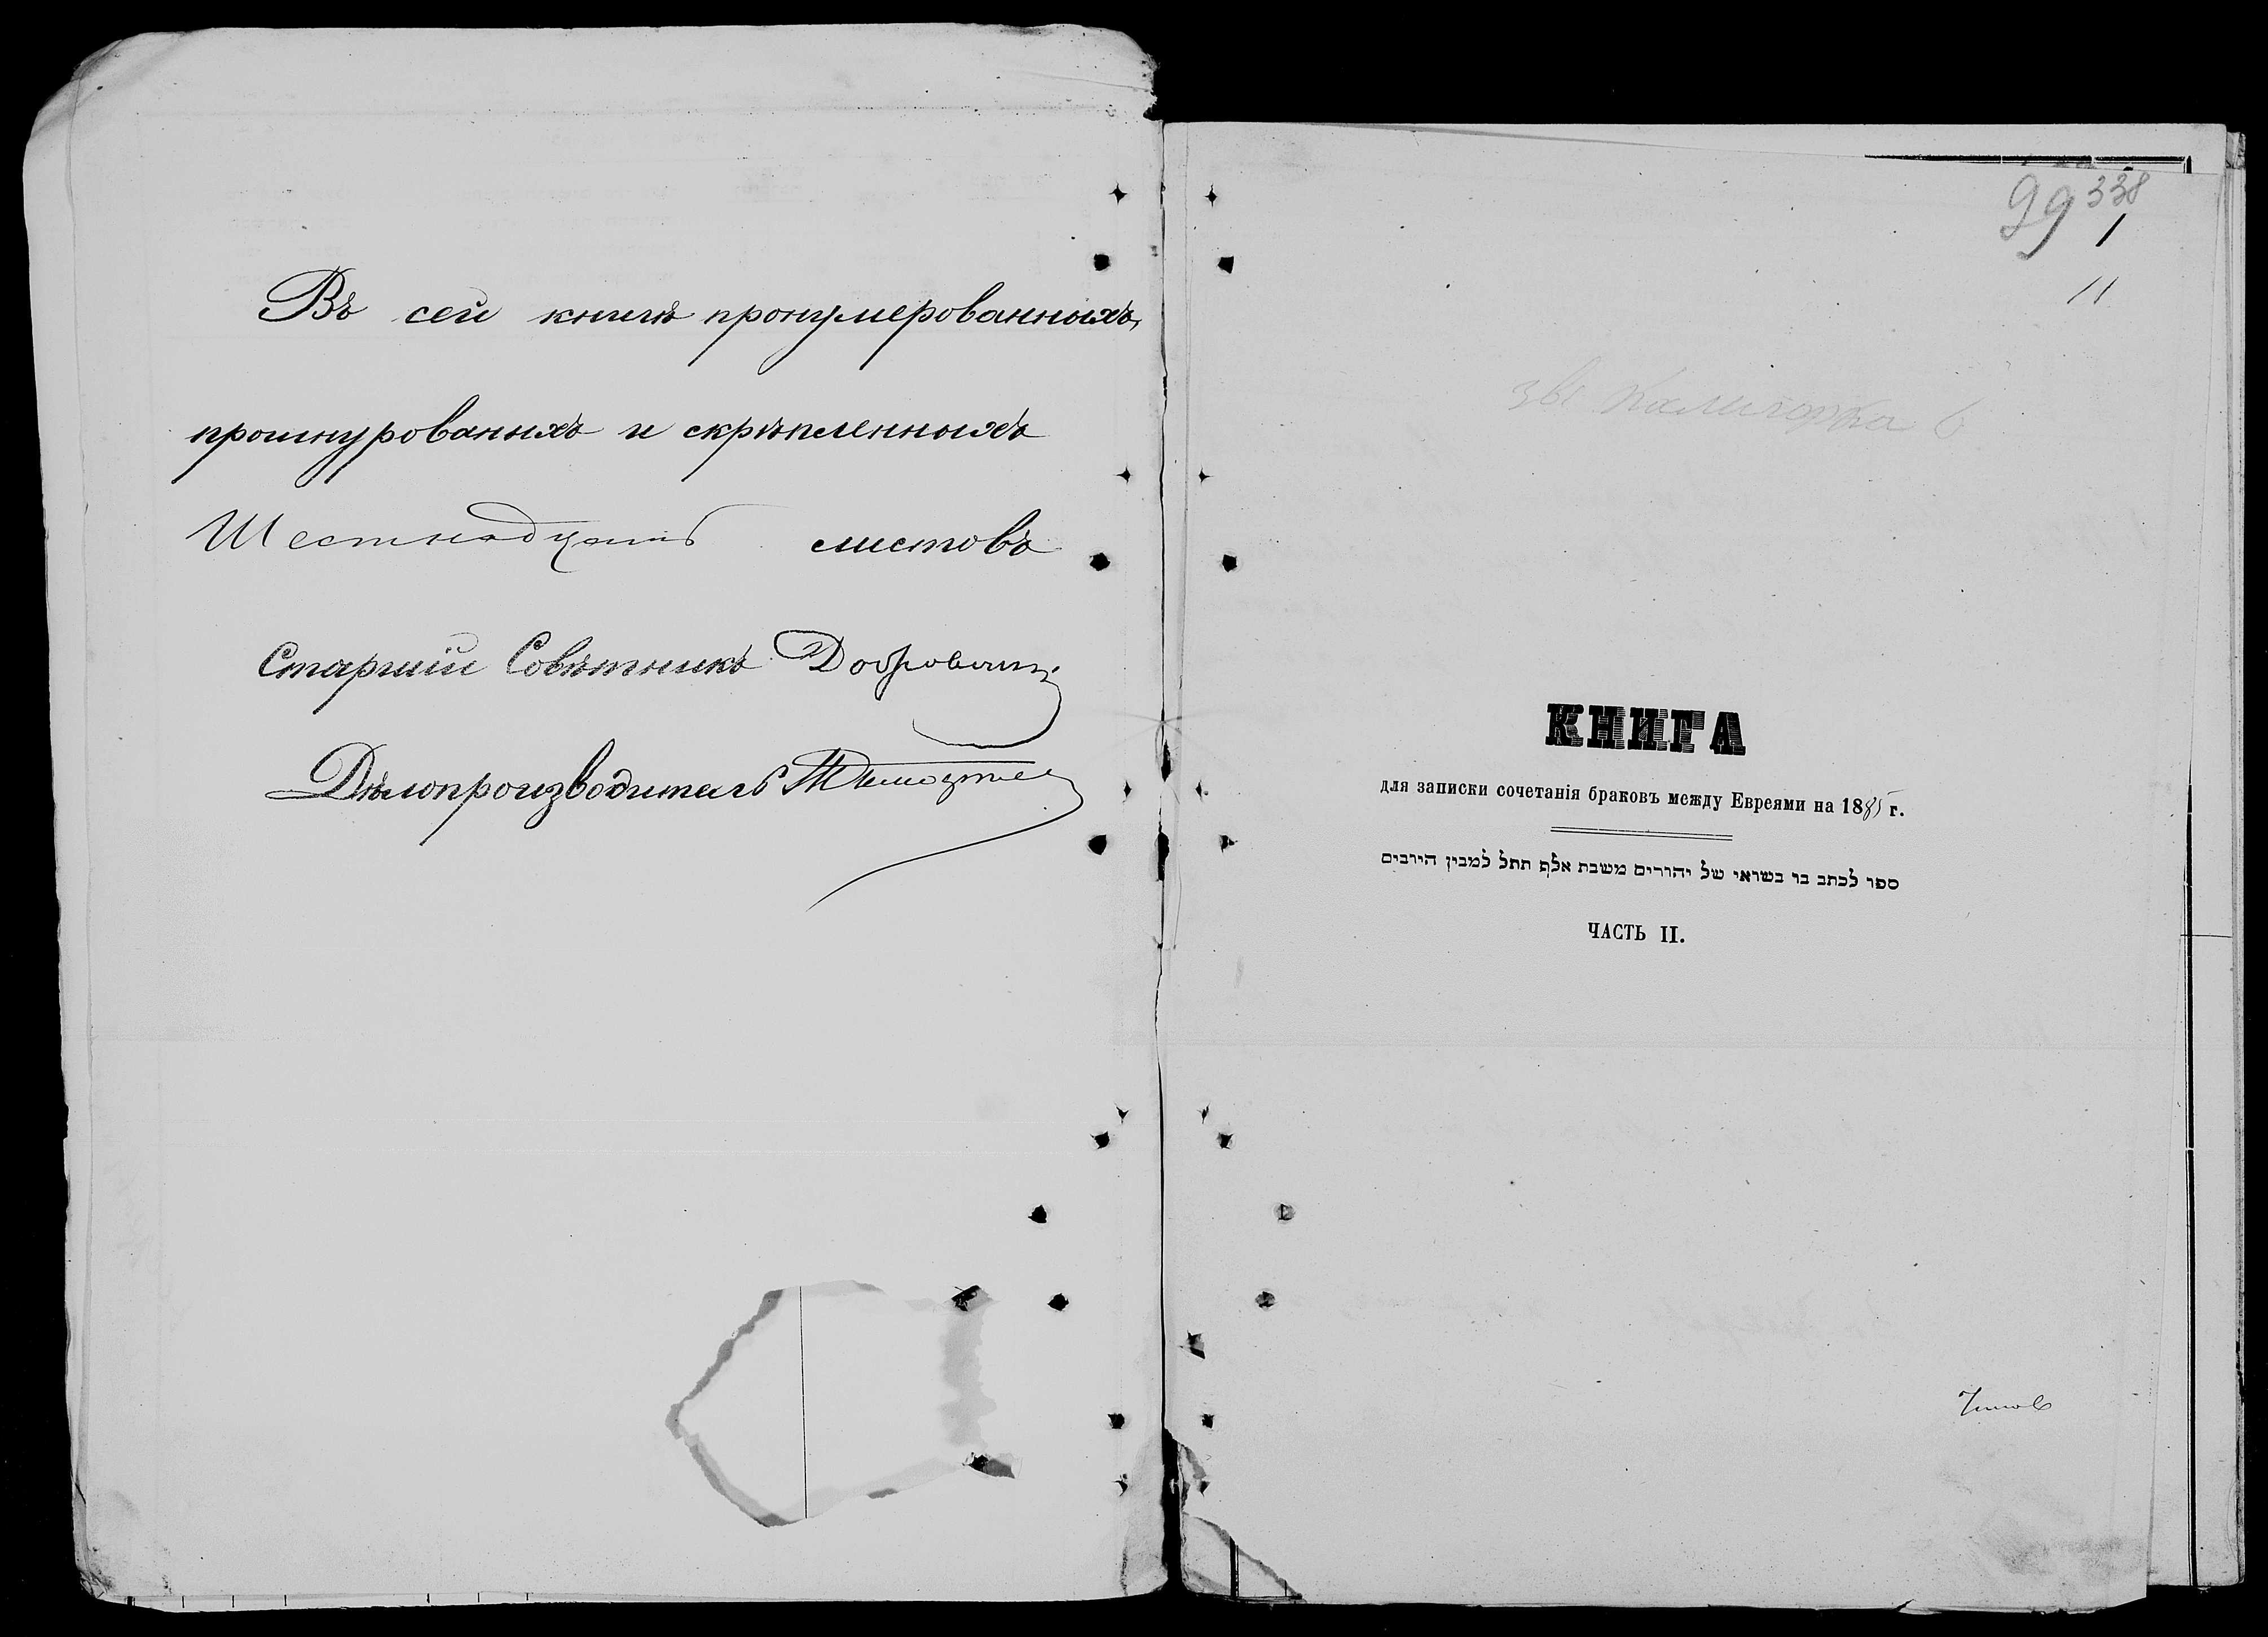 Въ сей книгѣ пронумерованныхъ,
прошнурованныхъ и скрѣпленныхъ
Шестнадцать листовъ
Старшій Совѣтникъ
Дѣлопроизводитель
99 338
1
11
КНИГА
для записки сочетанія браковъ между Евреями на 1885 г.
ספר לכתב בו בשואי של יהורים משבת אלף תתל למבין הירבים
ЧАСТЬ II.